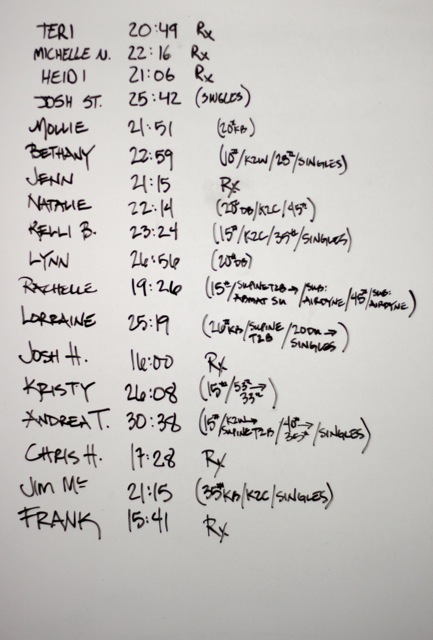 TERI 20:49 Rx
MICHELLE N. 22:16 Rx
HEIDI 21:06 Rx
JOSH ST. 25:42 (SINGLES)
MOLLIE 21:51 (20# KB)
BETHANY 22:59 (10#/K2W/25#/SINGLES)
JENN 21:15 Rx
NATALIE 22:14 (20# DB/K2C/45#)
KELLI B. 23:24 (15#/K2C/35#/SINGLES)
LYNN 26:56 (20# DB)
RACHELLE 19:26 (15#/SUPINE T2B → ABMAT SU/SUB: AIRDYNE/45#/SUB: AIRDYNE)
LORRAINE 25:19 (26# KB/SUPINE T2B/200m → SINGLES)
JOSH H. 16:00 Rx
KRISTY 26:08 (15#/53# → 33#)
ANDREA T. 30:38 (15#/K2W → SUPINE T2B/40# → 35#/SINGLES)
CHRIS H. 17:28 Rx
JIM Mc 21:15 (35# KB/K2C/SINGLES)
FRANK 15:41 Rx